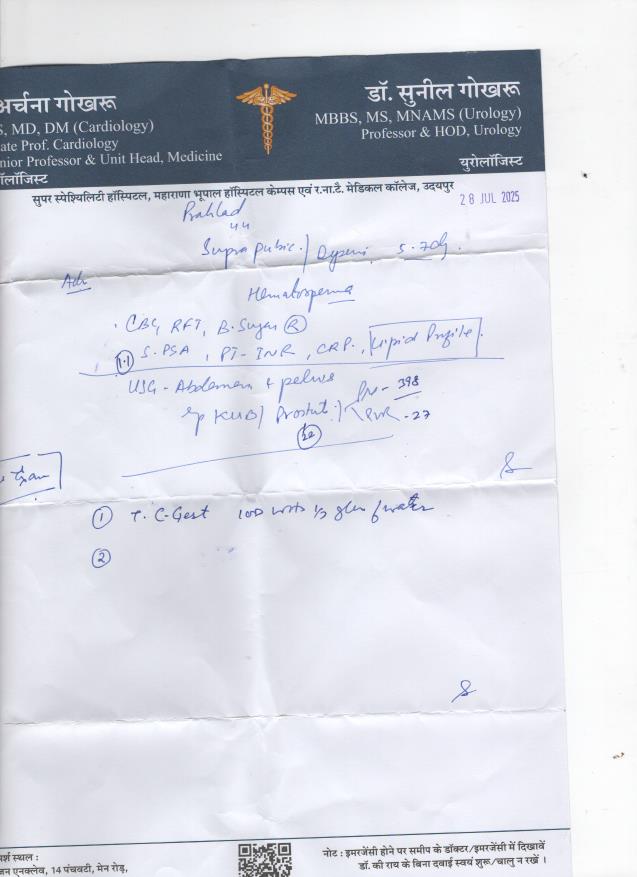 अर्चना गोखरू
S, MD, DM (Cardiology)
ate Prof. Cardiology
nior Professor & Unit Head, Medicine
ॉलॉजिस्ट
डॉ. सुनील गोखरू
MBBS, MS, MNAMS (Urology)
Professor & HOD, Urology
युरोलॉजिस्ट
सुपर स्पेश्यिलिटी हॉस्पिटल, महाराणा भूपाल हॉस्पिटल केम्पस एवं र.ना.टै. मेडिकल कॉलेज, उदयपुर
28 JUL 2025
Prahlad
44
Supra pubic /
Adv
Hematosperma
CBC, RFT, B. Sugar R
1.1 S. PSA, PT-INR, CRP, Lipid Profile
USG - Abdomen + pelvis
KUB / Prostate / - 398
PVR - 27
22
① T. C-Gest
②
मर्श स्थल :
जन एनक्लेव, 14 पंचवटी, मेन रोड़,
नोट : इमरजेंसी होने पर समीप के डॉक्टर/इमरजेंसी में दिखावें
डॉ. की राय के बिना दवाई स्वयं शुरू/चालु न रखें ।